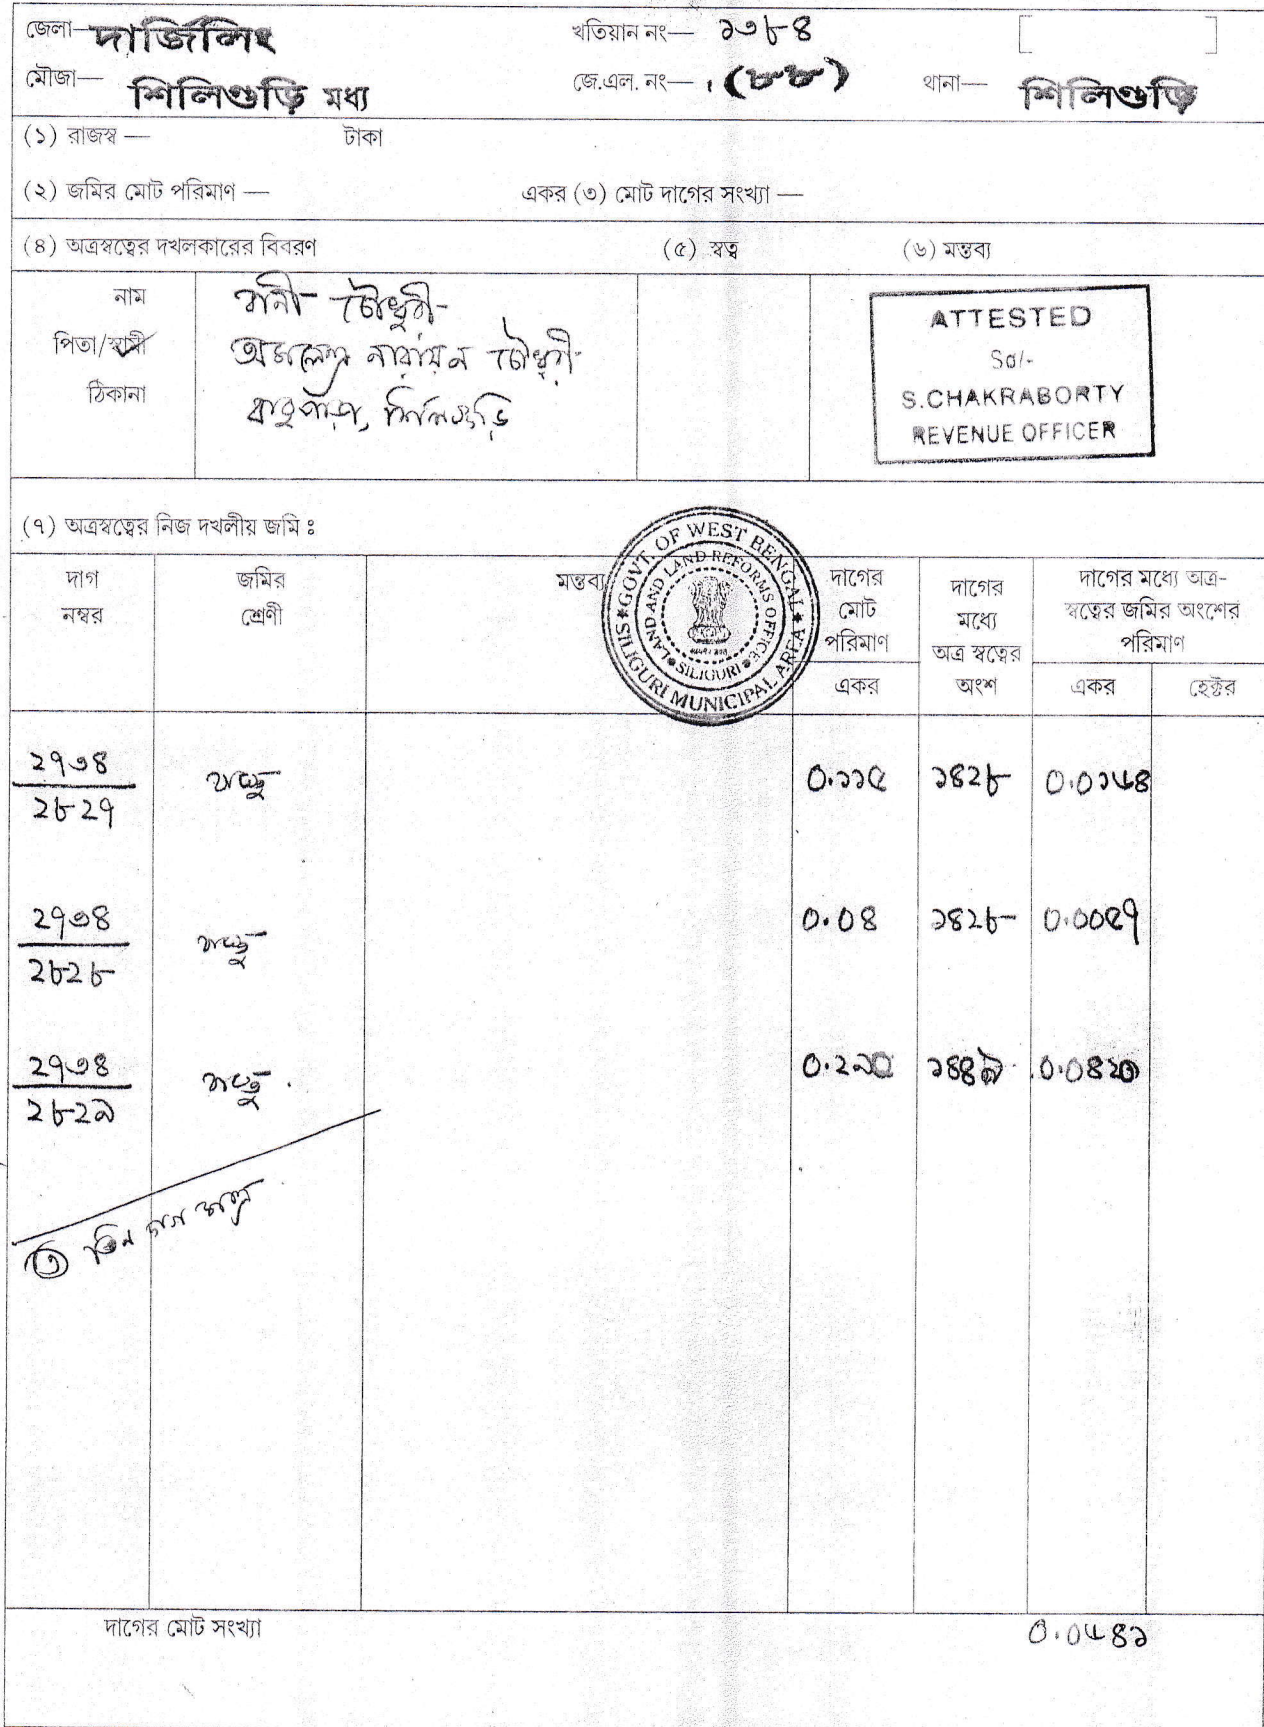 জেলা— দার্জিলিং
খতিয়ান নং— ১৩৮৪
মৌজা— শিলিগুড়ি মধ্য
জে.এল. নং— (৮৮)
থানা— শিলিগুড়ি
(১) রাজস্ব — টাকা
(২) জমির মোট পরিমাণ — একর (৩) মোট দাগের সংখ্যা —
(৪) অত্রস্বত্বের দখলকারের বিবরণ (৫) স্বত্ব (৬) মন্তব্য
নাম
রানী চৌধুরী
পিতা/স্বামী
অমলেন্দ্র নারায়ন চৌধুরী
ঠিকানা
বাবুপাড়া, শিলিগুড়ি
ATTESTED
Sd/-
S.CHAKRABORTY
REVENUE OFFICER
(৭) অত্রস্বত্বের নিজ দখলীয় জমি ঃ
দাগ
নম্বর
জমির
শ্রেণী
মন্তব্য
GOVT. OF WEST BENGAL
LAND AND LAND REFORMS OFFICE
SILIGURI
SILIGURI MUNICIPAL AREA
দাগের
মোট
পরিমাণ
একর
দাগের
মধ্যে
অত্র স্বত্বের
অংশ
দাগের মধ্যে অত্র-
স্বত্বের জমির অংশের
পরিমাণ
একর হেক্টর
২৭৩৪
২৮২৭
বাস্তু
0.১১৫ ১৪২৮ 0.0১৬৪
২৭৩৪
২৮২৮
বাস্তু
0.0৪ ১৪২৮ 0.00৫৭
২৭৩৪
২৮২৯
বাস্তু
0.২৯৫ ১৪৪৯ 0.0৪২0
৩ তিন দাগ মাত্র
দাগের মোট সংখ্যা
0.0৬৪১